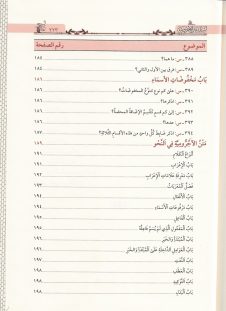 الموضوع رقم الصفحة
٣٨٨ - س: ما هما؟ ١٨٤
٣٨٩ - س: فرق بين الأول والثاني؟ ١٨٥
بَابُ مَخْفُوضَاتِ الأَسْمَاءِ ١٨٦
٣٩٠ - س: على كم نوع تتنوع المخفوضات؟ ١٨٦
٣٩١ - س: اذكرها؟ ١٨٦
٣٩٢ - س: إلى كم قسم تنقسم الإضافة المحضة؟ ١٨٧
٣٩٣ - س: عدها؟ ١٨٧
٣٩٤ - س: اذكر ضابط كل واحد من هذه الأقسام الثلاثة؟ ١٨٧
مَتْنُ الآجُرُّومِيَّةِ فِي النَّحْوِ ١٨٩
أَنْوَاعُ الْكَلَامِ ١٩١
بَابُ الْإِعْرَابِ ١٩١
بَابُ مَعْرِفَةِ عَلَامَاتِ الْإِعْرَابِ ١٩١
فَصْلٌ الْمُعْرَبَاتُ ١٩٣
بَابُ الْأَفْعَالِ ١٩٤
بَابُ مَرْفُوعَاتِ الْأَسْمَاءِ ١٩٤
بَابُ الْفَاعِلِ ١٩٥
بَابُ الْمَفْعُولِ الَّذِي لَمْ يُسَمَّ فَاعِلُهُ ١٩٥
بَابُ الْمُبْتَدَأِ وَالْخَبَرِ ١٩٦
بَابُ الْعَوَامِلِ الدَّاخِلَةِ عَلَى الْمُبْتَدَأِ وَالْخَبَرِ ١٩٦
بَابُ النَّعْتِ ١٩٧
بَابُ الْعَطْفِ ١٩٧
بَابُ التَّوْكِيدِ ١٩٨
بَابُ الْبَدَلِ ١٩٨